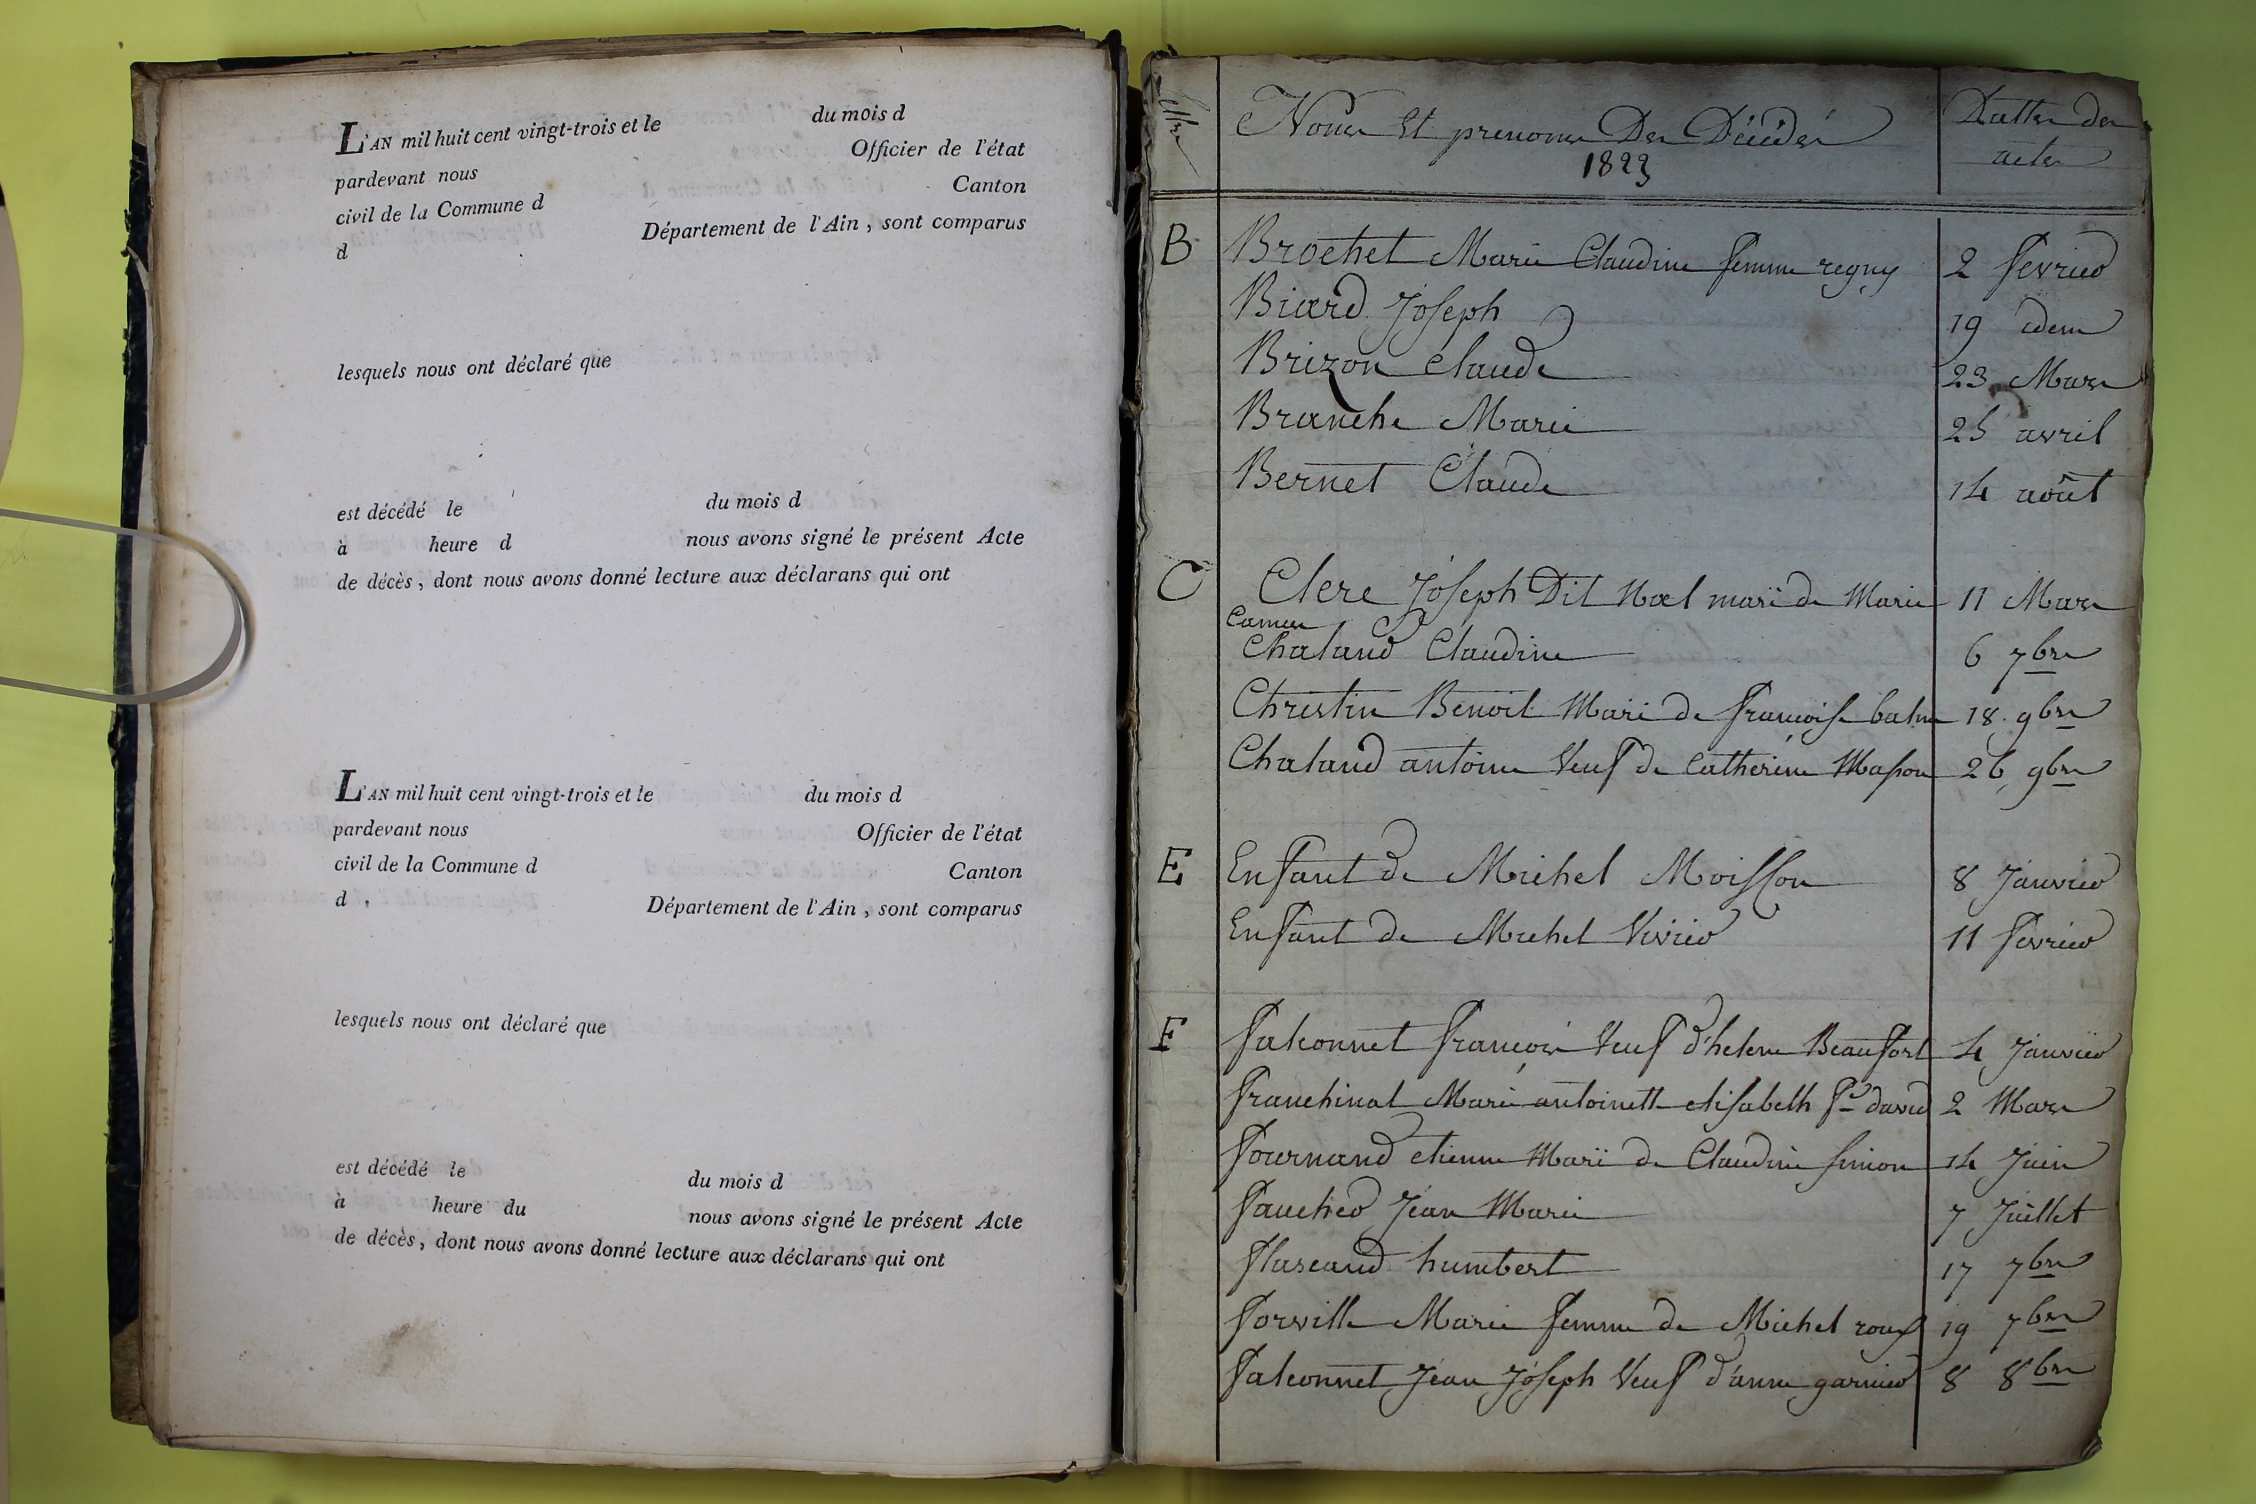 L'AN mil huit cent vingt-trois et le du mois d
pardevant nous Officier de l'état
civil de la Commune d Canton
d Département de l'Ain, sont comparus
lesquels nous ont déclaré que
est décédé le du mois d
à heure d nous avons signé le présent Acte
de décès, dont nous avons donné lecture aux déclarans qui ont
L'AN mil huit cent vingt-trois et le du mois d
pardevant nous Officier de l'état
civil de la Commune d Canton
d Département de l'Ain, sont comparus
lesquels nous ont déclaré que
est décédé le du mois d
à heure du nous avons signé le présent Acte
de décès, dont nous avons donné lecture aux déclarans qui ont
Noms et prenoms Des Décédés Dattes des
1823 actes
B Brochet Marie Claudine femme regny 2 fevrier
Biard Joseph 19 idem
Brizon Claude 23 Mars
Branche Marie 25 avril
Bernet Claude 14 août
C Clerc Joseph Dit Noel mari de Marie 11 Mars
Camus
Chaland Claudine 6 7bre
Christin Benoit Mari de francoise balme 18 9bre
Chaland antoine Veuf de Catherine Masson 26 9bre
E Enfant de Michel Moisson 8 Janvier
Enfant de Michel Vivier 11 fevrier
F falconnet francois Veuf d'helene Beaufort 4 Janvier
franchinat Marie antoinette elisabeth fe david 2 Mars
fournand etienne Mari de Claudine simon 14 Juin
faucher Jean Marie 7 Juillet
flascand humbert 17 7bre
forville Marie femme de Michel roux 19 7bre
falconnet Jean Joseph Veuf d'anne garnier 8 8bre